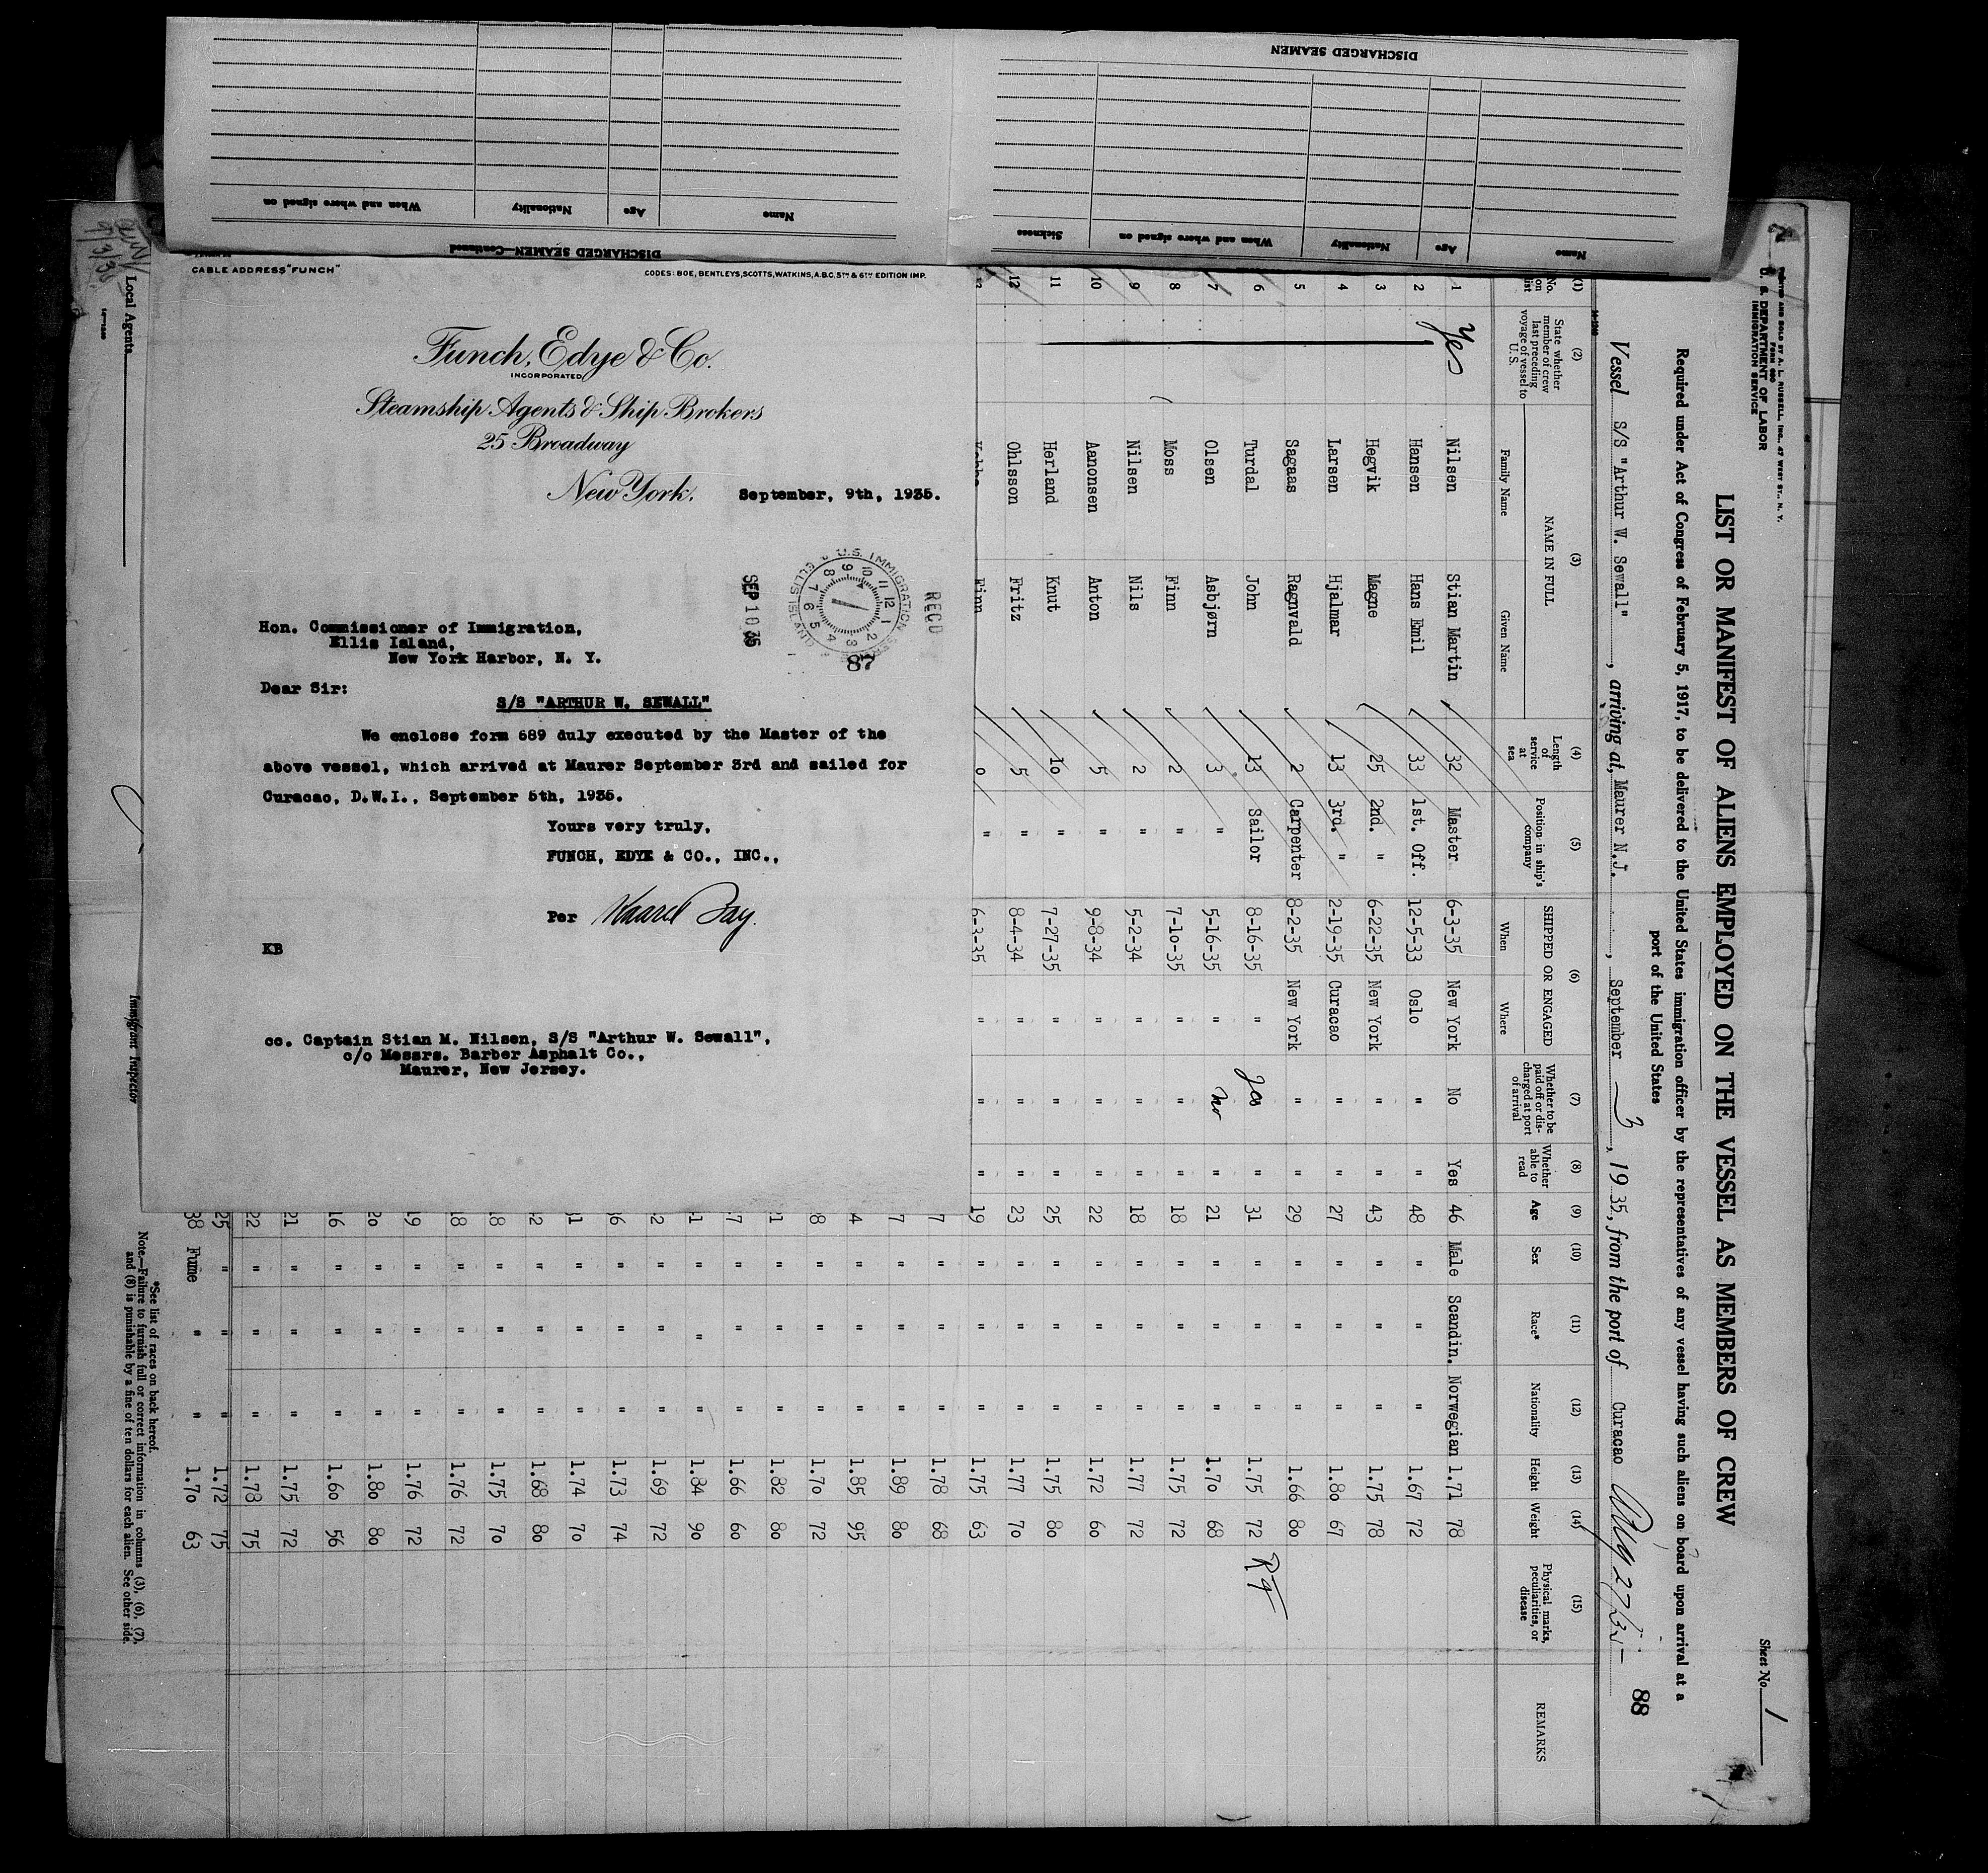 DISCHARGED SEAMEN
Name Age Nationality When and where signed on Sickness
DISCHARGED SEAMEN—Continued
Name Age Nationality When and where signed on
CABLE ADDRESS "FUNCH"
CODES: BOE, BENTLEYS, SCOTTS, WATKINS, A.B.C. 5TH & 6TH EDITION IMP.
Funch, Edye & Co.
INCORPORATED
Steamship Agents & Ship Brokers
25 Broadway
New York. September, 9th, 1935.
RECD
U.S. IMMIGRATION
ELLIS ISLAND
SEP 10 35
87
Hon. Commissioner of Immigration,
Ellis Island,
New York Harbor, N. Y.
Dear Sir:
S/S "ARTHUR W. SEWALL"
We enclose form 689 duly executed by the Master of the
above vessel, which arrived at Maurer September 3rd and sailed for
Curacao, D.W.I., September 5th, 1935.
Yours very truly,
FUNCH, EDYE & CO., INC.,
Per
KB
cc. Captain Stian M. Nilsen, S/S "Arthur W. Sewall",
c/o Messrs. Barber Asphalt Co.,
Maurer, New Jersey.
PRINTED AND SOLD BY A. L. RUSSELL, INC., 47 WEST ST., N. Y.
FORM 680
U. S. DEPARTMENT OF LABOR
IMMIGRATION SERVICE
Sheet No. 1
LIST OR MANIFEST OF ALIENS EMPLOYED ON THE VESSEL AS MEMBERS OF CREW
Required under Act of Congress of February 5, 1917, to be delivered to the United States immigration officer by the representatives of any vessel having such aliens on board upon arrival at a
port of the United States
88
Vessel S/S "Arthur W. Sewall", arriving at, Maurer N.J., September 3, 1935, from the port of Curacao Aug 27/35
(1) (2) (3) (4) (5) (6) (7) (8) (9) (10) (11) (12) (13) (14) (15)
No. on list
State whether member of crew last preceding voyage of vessel to U. S.
NAME IN FULL
Family Name Given Name
Length of service at sea
Position in ship's company
SHIPPED OR ENGAGED
When Where
Whether to be paid off or discharged at port of arrival
Whether able to read
Age Sex Race* Nationality Height Weight
Physical marks, peculiarities, or disease
REMARKS
1 Yes Nilsen Stian Martin 32 Master 6-3-35 New York No Yes 46 Male Scandin. Norwegian 1.71 78
2 Hansen Hans Emil 33 1st. Off. 12-5-33 Oslo " " 48 " " " 1.67 72
3 Hegvik Magne 25 2nd. " 6-22-35 New York " " 43 " " " 1.75 78
4 Larsen Hjalmar 13 3rd. " 2-19-35 Curacao " " 27 " " " 1.80 67
5 Sagaas Ragnvald 2 Carpenter 8-2-35 New York " " 29 " " " 1.66 80
6 Turdal John 13 Sailor 8-16-35 " Yes " 31 " " " 1.75 72
7 Olsen Asbjørn 3 " 5-16-35 " no " 21 " " " 1.70 68
8 Moss Finn 2 " 7-10-35 " " " 18 " " " 1.75 72
9 Nilsen Nils 2 " 5-2-34 " " " 18 " " " 1.77 72
10 Aanonsen Anton 5 " 9-8-34 " " " 22 " " " 1.72 60
11 Herland Knut 10 " 7-27-35 " " " 25 " " " 1.75 80
12 Ohlsson Fritz 5 " 8-4-34 " " " 23 " " " 1.77 70
Finn 0 " 6-3-35 " " " 19 " " " 1.75 63
7 " " " 1.78 68
7 " " " 1.89 80
4 " " " 1.85 95
8 " " " 1.70 72
1 " " " 1.82 80
7 " " " 1.66 60
1 " " " 1.84 90
2 " " " 1.69 72
6 " " " 1.73 74
1 " " " 1.74 70
2 " " " 1.68 80
8 " " " 1.75 70
8 " " " 1.76 72
9 " " " 1.76 72
20 " " " 1.80 80
16 " " " 1.60 56
21 " " " 1.75 72
22 " " " 1.78 75
25 " " " 1.72 75
38 Fume " " 1.70 63
*See list of races on back hereof.
Note.—Failure to furnish full or correct information in columns (3), (6), (7),
and (8) is punishable by a fine of ten dollars for each alien. See other side.
Local Agents
Immigrant Inspector